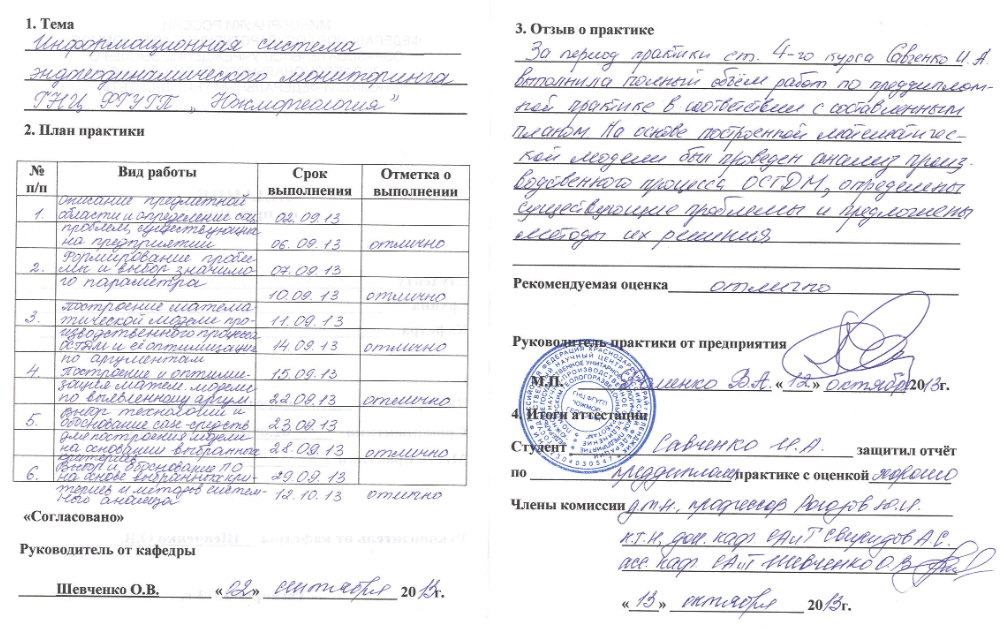 1. Тема
Информационная система
эндогеодинамического мониторинга
ГНЦ ФГУГП „Южморгеология”
2. План практики
№ п/п Вид работы Срок выполнения Отметка о выполнении
1. описание предметной
области и определение
проблем, существующих 02.09.13
на предприятии 06.09.13 отлично
2. Формирование пробле-
мы и выбор значимо- 07.09.13
го параметра 10.09.13 отлично
3. построение матема-
тической модели про- 11.09.13
изводственного процесса
и её оптимизация 14.09.13 отлично
по аргументам
4. Построение и оптими- 15.09.13
зация матем. модели
по выявленному аргум. 22.09.13 отлично
5. выбор технологий и
обоснование средств 23.09.13
для построения модели
на основании выбранных 28.09.13 отлично
критериев
6. Выбор и обоснование ПО 29.09.13
на основе выбранных кри-
териев и методов систем- 12.10.13 отлично
ного анализа
«Согласовано»
Руководитель от кафедры
Шевченко О.В. «02» сентября 2013г.
3. Отзыв о практике
За период практики ст. 4-го курса Савченко И.А.
выполнила полный объём работ по преддиплом-
ной практике в соответствии с составленным
планом. На основе построенной математичес-
кой модели был проведен анализ произ-
водственного процесса ОСГДМ, определены
существующие проблемы и предложены
методы их решения
Рекомендуемая оценка отлично
Руководитель практики от предприятия
М.П. В.А. «12» октября 2013г.
4. Итоги аттестации
Студент Савченко И.А. защитил отчёт
по преддиплом практике с оценкой хорошо
Члены комиссии д.т.н., профессор Ю.И.
к.т.н, доц. каф. САиТ Свиридов А.С.
асс. каф. САиТ Шевченко О.В.
«13» октября 2013г.